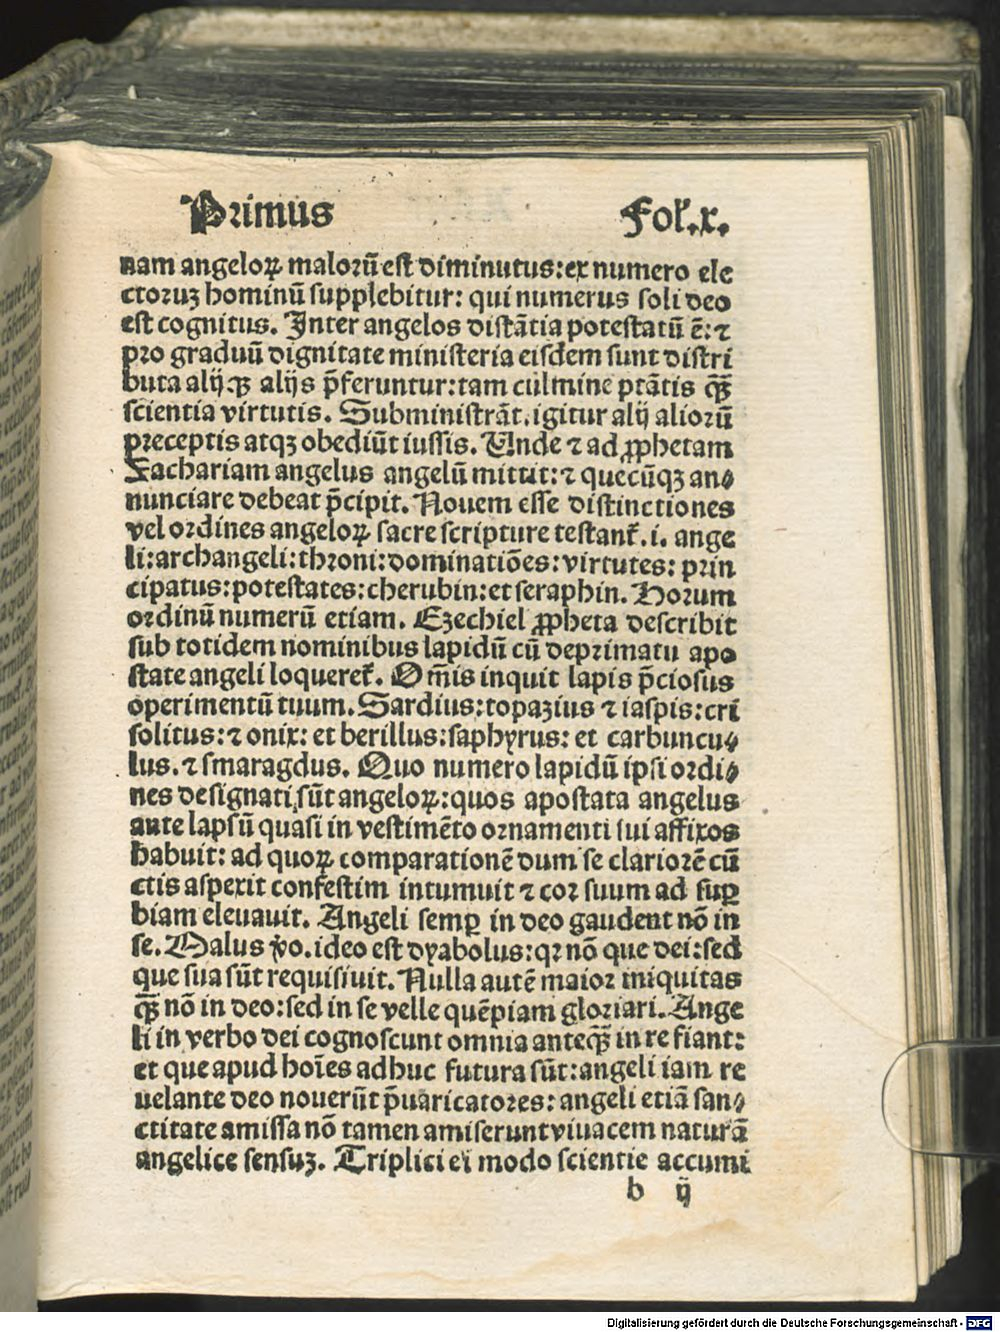 Primus Fol.x.
nam angeloꝝ maloꝛū est diminutus: ex numero ele
ctoꝛuꝫ hominū supplebitur: qui numerus soli deo
est cognitus. Inter angelos distātia potestatū ē: ⁊
pꝛo graduū dignitate ministeria eisdem sunt distri
buta alij.qꝫ alijs p̄feruntur: tam culmine ptātis qꝫ̄
scientia virtutis. Subministrāt.igitur alij alioꝛū
pꝛeceptis atqꝫ obediūt iussis. Unde ⁊ ad ꝓphetam
Zachariam angelus angelū mittit: ⁊ quecūqꝫ an⸗
nunciare debeat p̄cipit. Nouem esse distinctiones
vel oꝛdines angeloꝝ sacre scripture testanť.i. ange
li: archangeli: thꝛoni: dominatiōes: virtutes: pꝛin
cipatus: potestates: cherubin: et seraphin. Hoꝛum
oꝛdinū numerū etiam. Ezechiel ꝓpheta describit
sub totidem nominibus lapidū cū de pꝛimatu apo
state angeli loquereť. Om̄is inquit lapis p̄ciosus
operimentū tuum. Sardius: topazius ⁊ iaspis: cri
solitus: ⁊ onix: et berillus: saphyrus: et carbuncu⸗
lus. ⁊ smaragdus. Quo numero lapidū ipsi oꝛdi⸗
nes designati sūt angeloꝝ: quos apostata angelus
ante lapsū quasi in vestimēto oꝛnamenti sui affixos
habuit: ad quoꝝ comparationē dum se clarioꝛē cū
ctis aspexit confestim intumuit ⁊ coꝛ suum ad suꝑ
biam eleuauit. Angeli semꝑ in deo gaudent nō in
se. Malus ṽo. ideo est dyabolus: qꝛ nō que dei: sed
que sua sūt requisiuit. Nulla autē maioꝛ iniquitas
qꝫ̄ nō in deo: sed in se velle quēpiam gloꝛiari. Ange
li in verbo dei cognoscunt omnia anteqꝫ̄ in re fiant:
et que apud hoīes adhuc futura sūt: angeli iam re
uelante deo nouerūt p̄uaricatoꝛes: angeli etiā san⸗
ctitate amissa nō tamen amiserunt viuacem naturā
angelice sensuꝫ. Triplici ei modo scientie accumi
b ij
Digitalisierung gefördert durch die Deutsche Forschungsgemeinschaft - DFG